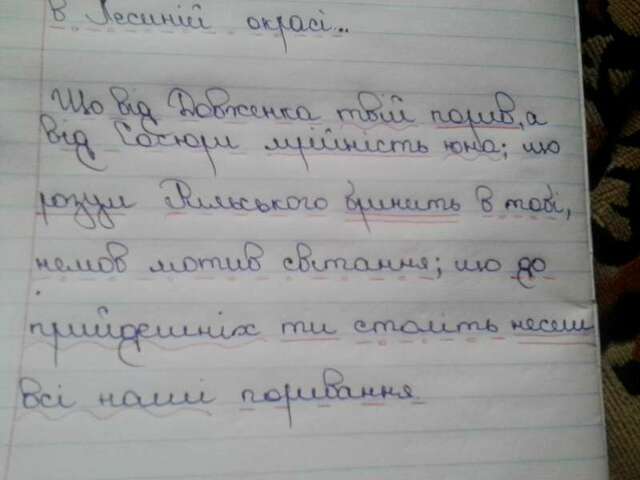 в Лесиній окрасі...
Що від Довженка твій порив, а
від Сосюри мрійність юна; що
розум Рильського бринить в тобі,
немов мотив світання; що до
прийдешніх ти століть несеш
всі наші поривання